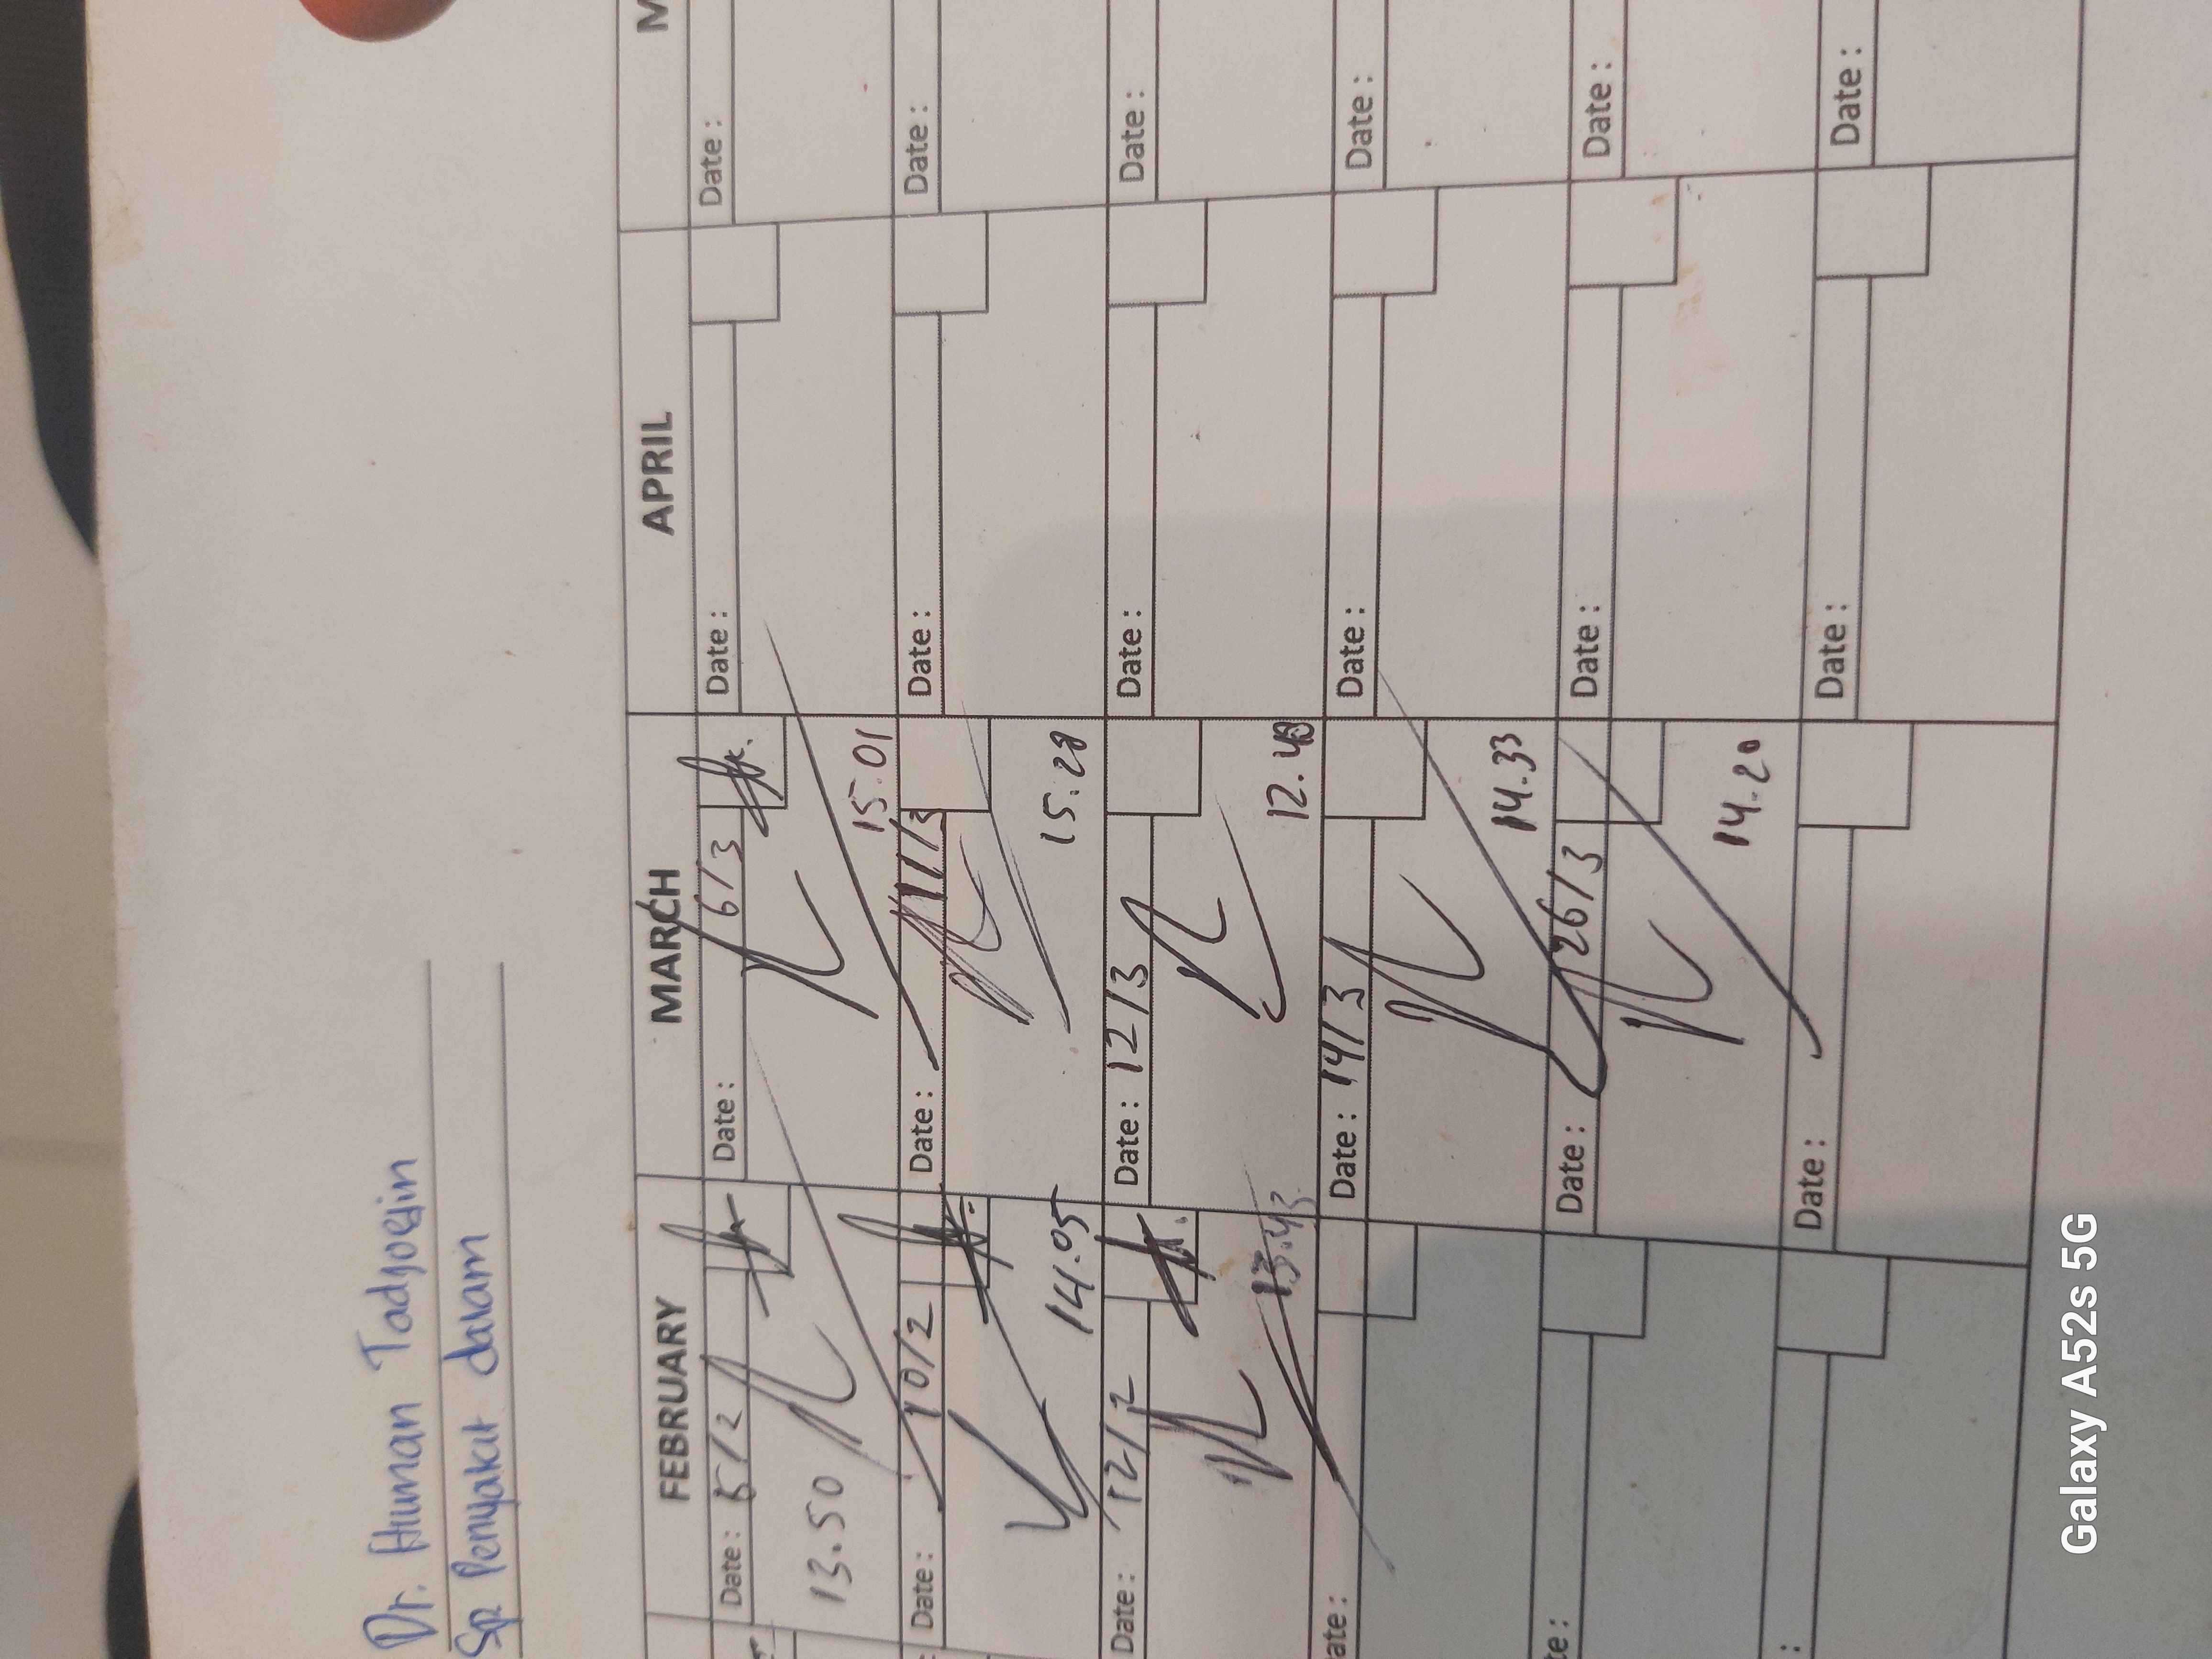 Dr. Human Tadjoedin
Sp Penyakit dalam
FEBRUARY MARCH APRIL M
Date : 5/2 Date : 6/3 Date : Date :
13.50 15.01
Date : 10/2 Date : 11/3 Date : Date :
14.05 15.28
Date : 12/2 Date : 12/3 Date : Date :
13.43 12.40
ate : Date : 14/3 Date : Date :
14.33
te : Date : 26/3 Date : Date :
14.20
: Date : Date : Date :
Galaxy A52s 5G